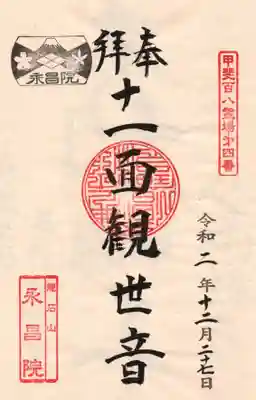 甲斐百八霊場第四番
奉拝
十一面觀世音
令和二年十二月二十七日
永昌院
龍石山
永昌院